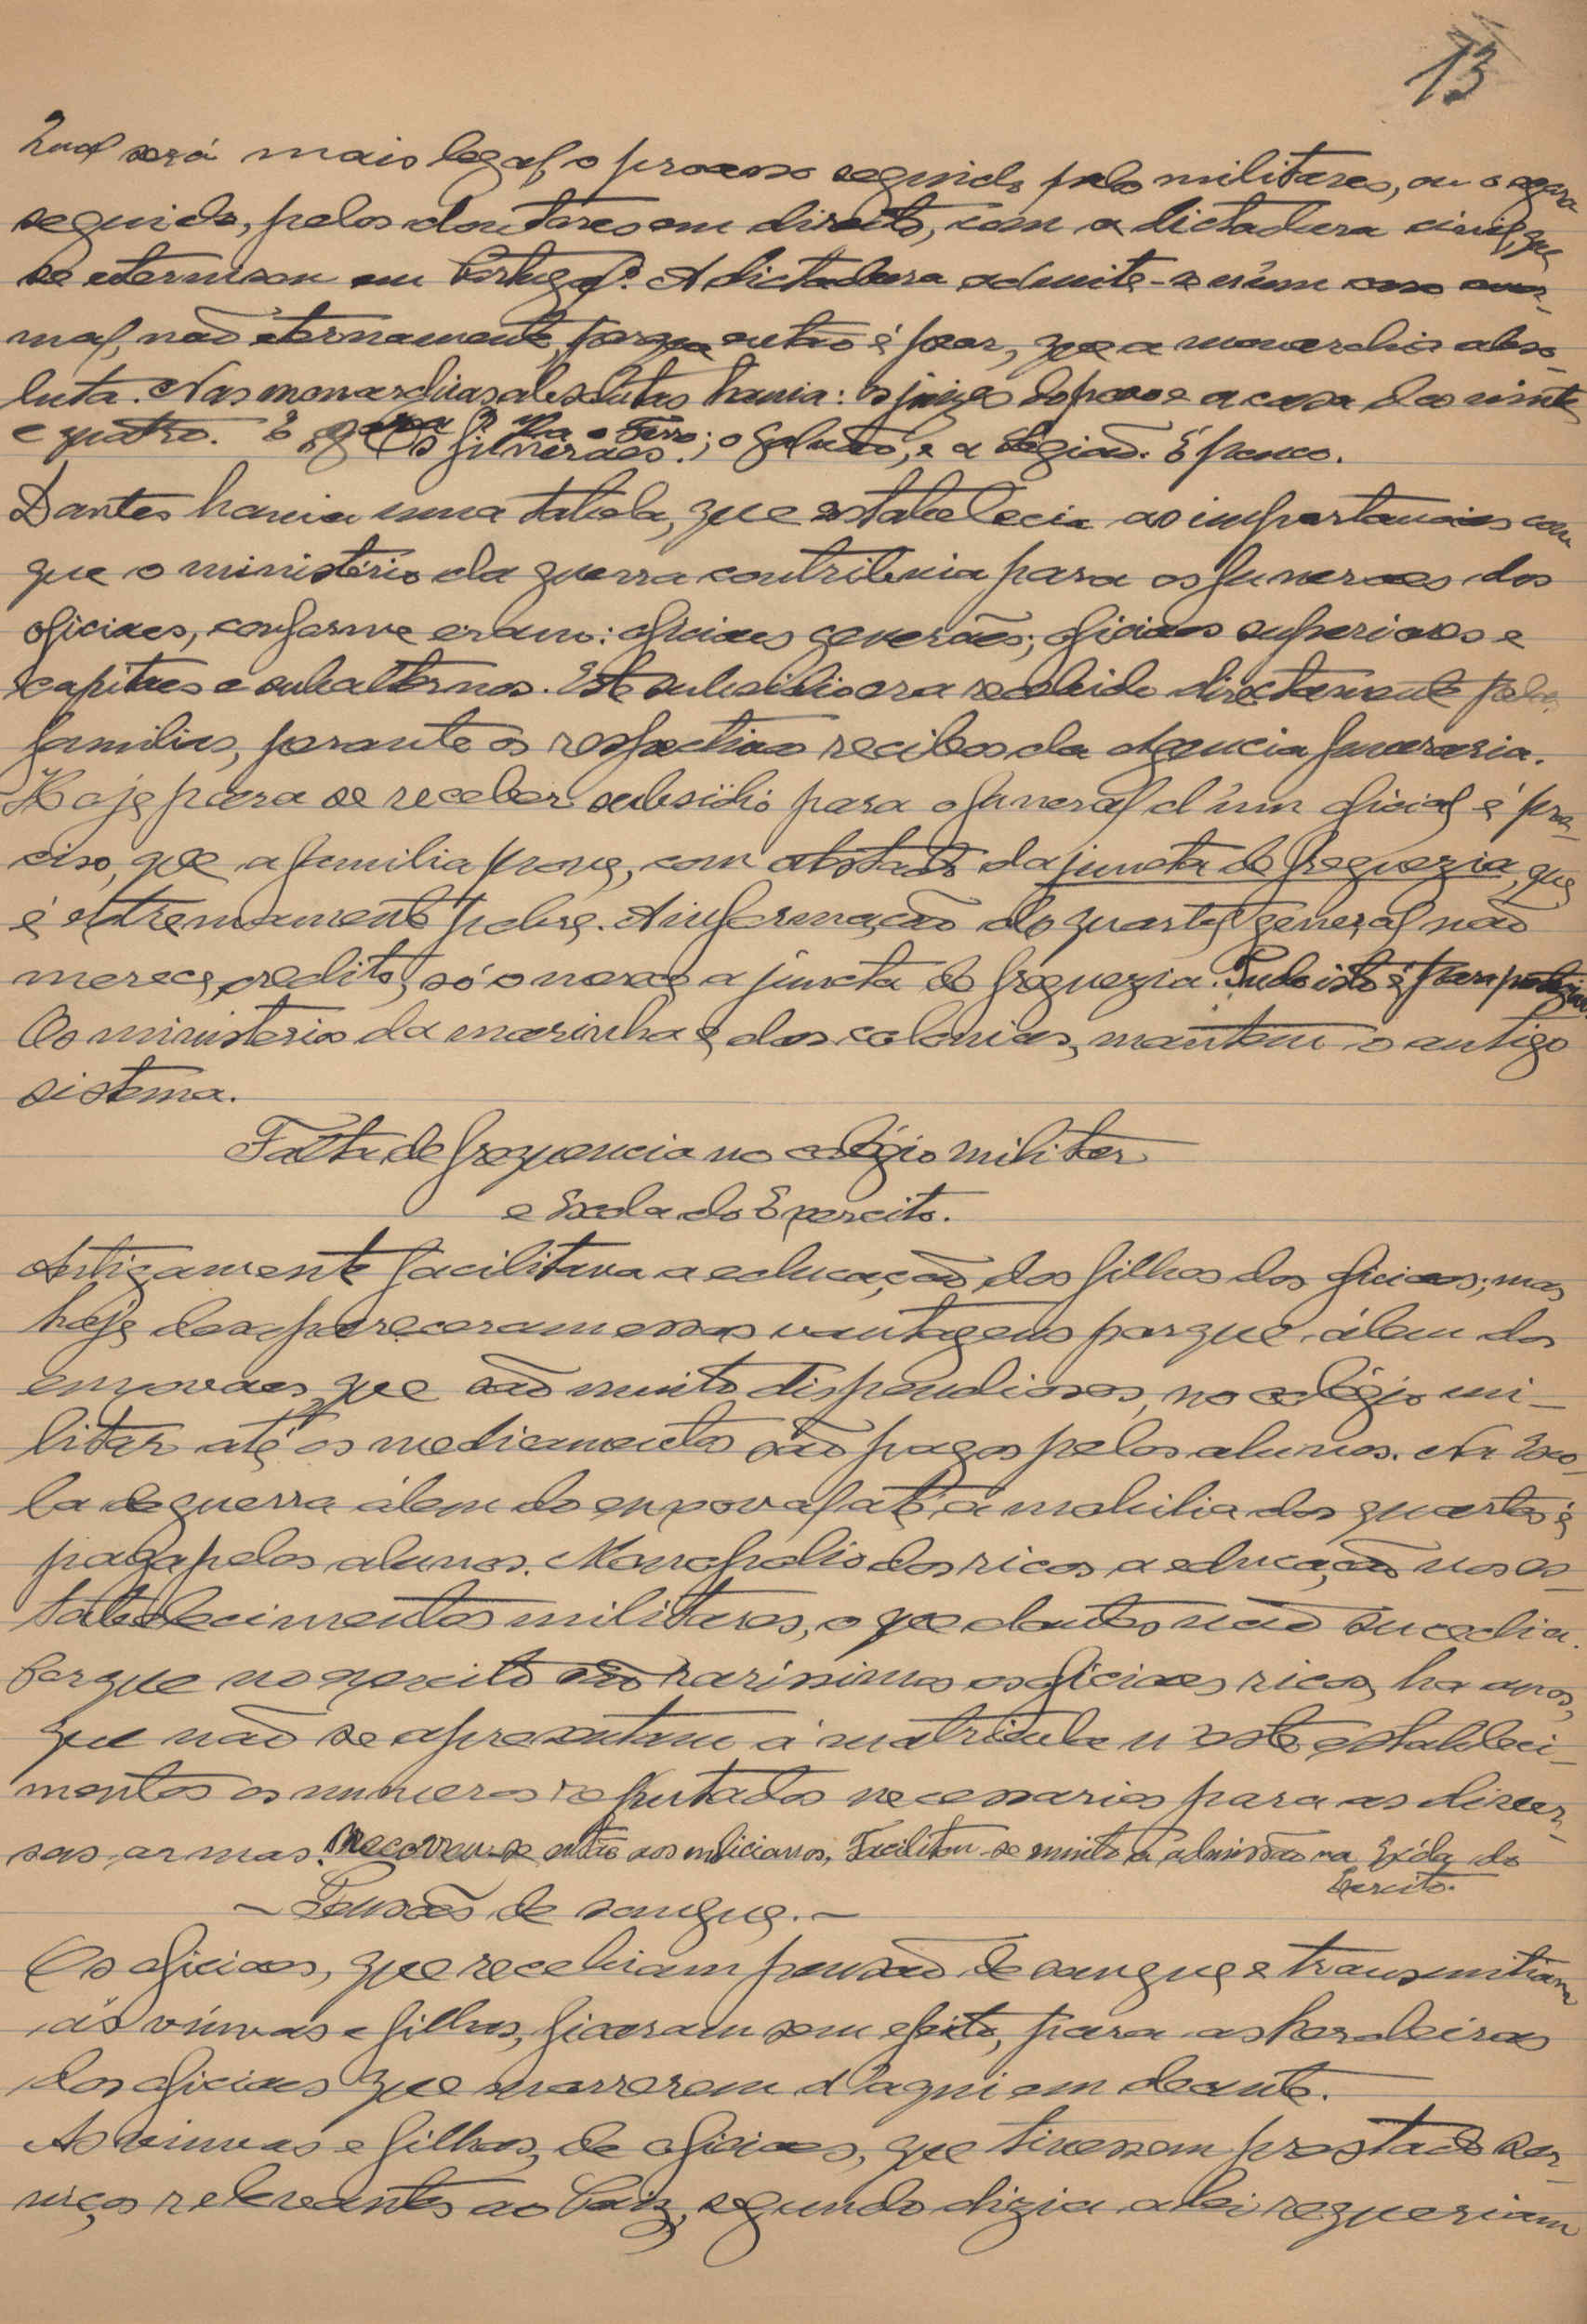 13
Qual será mais legal, o processo seguido pelos militares, ou o agora
seguido, pelos doutores em direito, com a dictadura civil, que
se eternisou em Portugal? A dictadura admite-se n'um caso anor-
mal, não eternamente, porque então é peor, que a monarchia abso-
luta. Nas monarchias absolutas havia: os juizes do povo e a casa dos vinte
e quatro. E agora? Ha o Tarro; o Galvão, e a Legião. É pouco.
Os funerães.
Dantes havia uma tabela, que estabelecia as importancias com
que o ministério da guerra contribuia para os funeraes dos
oficiaes, conforme eram: oficiaes generães; oficiaes superiores e
capitães e subalternos. Este subsidio era recebido directamente pelas
familias, perante os respectivos recibos da Agencia funeraria.
Hoje para se receber subsidio para o funeral d'um oficial é pre-
ciso, que a familia prove, com atestado da juncta de freguezia, que
é extremamente pobre. A informação do quartel general não
merece credito, só o merece a juncta de freguezia. Tudo isto é para
Os ministerios da marinha e das colonias, mantem o antigo
sistema.
Falta de frequencia no colégio militar
e Escola do Exercito.
Antigamente facilitava a educação dos filhos dos oficiaes; mas
hoje desapareceram essas vantagens porque, álem dos
enxovaes que são muito dispendiosos, no colégio mi-
litar até os medicamentos são pagos pelos alunos. Na Esco-
la de guerra álem do enxoval até a mobilia dos quartos é
paga pelos alunos. Monopolio dos ricos a educação nos es-
tabelecimentos militares, o que dantes não sucedia.
Porque no exercito são rarissimos os oficiaes ricos, ha anos,
que não se apresentam á matricula n'estes estableci-
mentos os numeros reputados necessarios para as diver-
sas armas. Recorreu-se então aos milicianos. Facilitou-se muito a admissão na Escola do
Exercito.
- Pensões de sangue. -
Os oficiaes, que recebiam pensão de sangue e transmitiam
ás viuvas e filhas, ficaram sem efeito, para as herdeiras
dos oficiaes que morrerem d'aqui em deante.
As viuvas e filhas, de oficiaes, que tivessem prestado ser-
viços relevantes ao Paiz, segundo dizia a lei requeriam